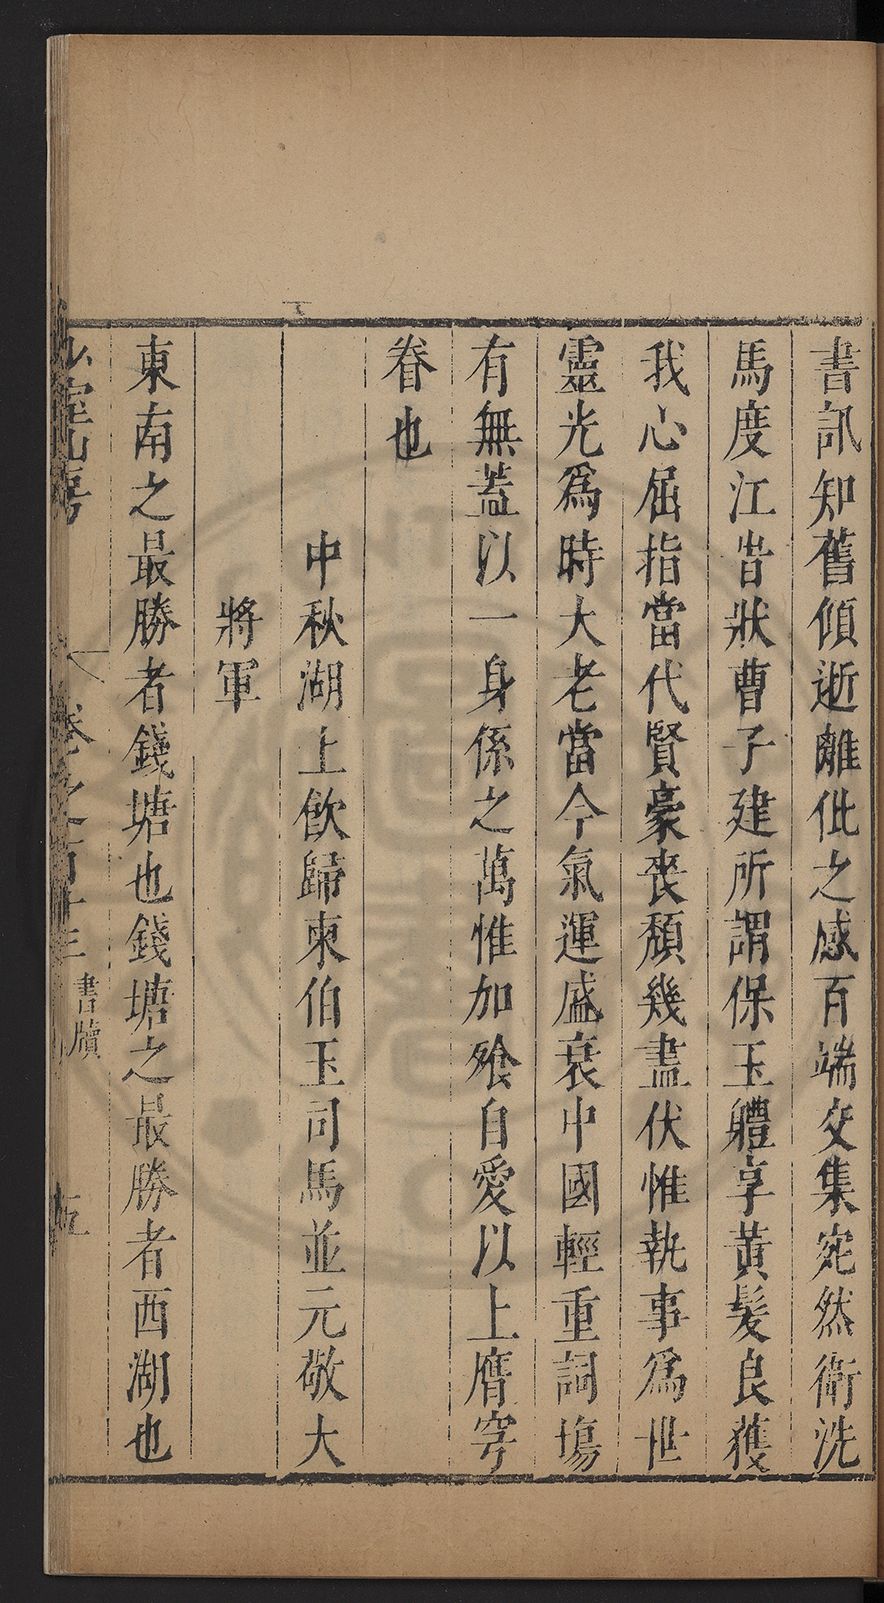 書訊知舊傾逝離仳之感百端交集宛然衛洗
馬度江時狀曹子建所謂保玉軆享黃髮良獲
我心屈指當代賢豪喪頹幾盡伏惟執事爲世
靈光爲時大老當今氣運盛衰中國輕重詞塲
有無蓋以一身係之萬惟加飱自愛以上膺穹
眷也
中秋湖上飲歸柬伯玉司馬並元敬大
將軍
東南之最勝者錢塘也錢塘之最勝者西湖也
少室山房 卷之百十三 書牘 五